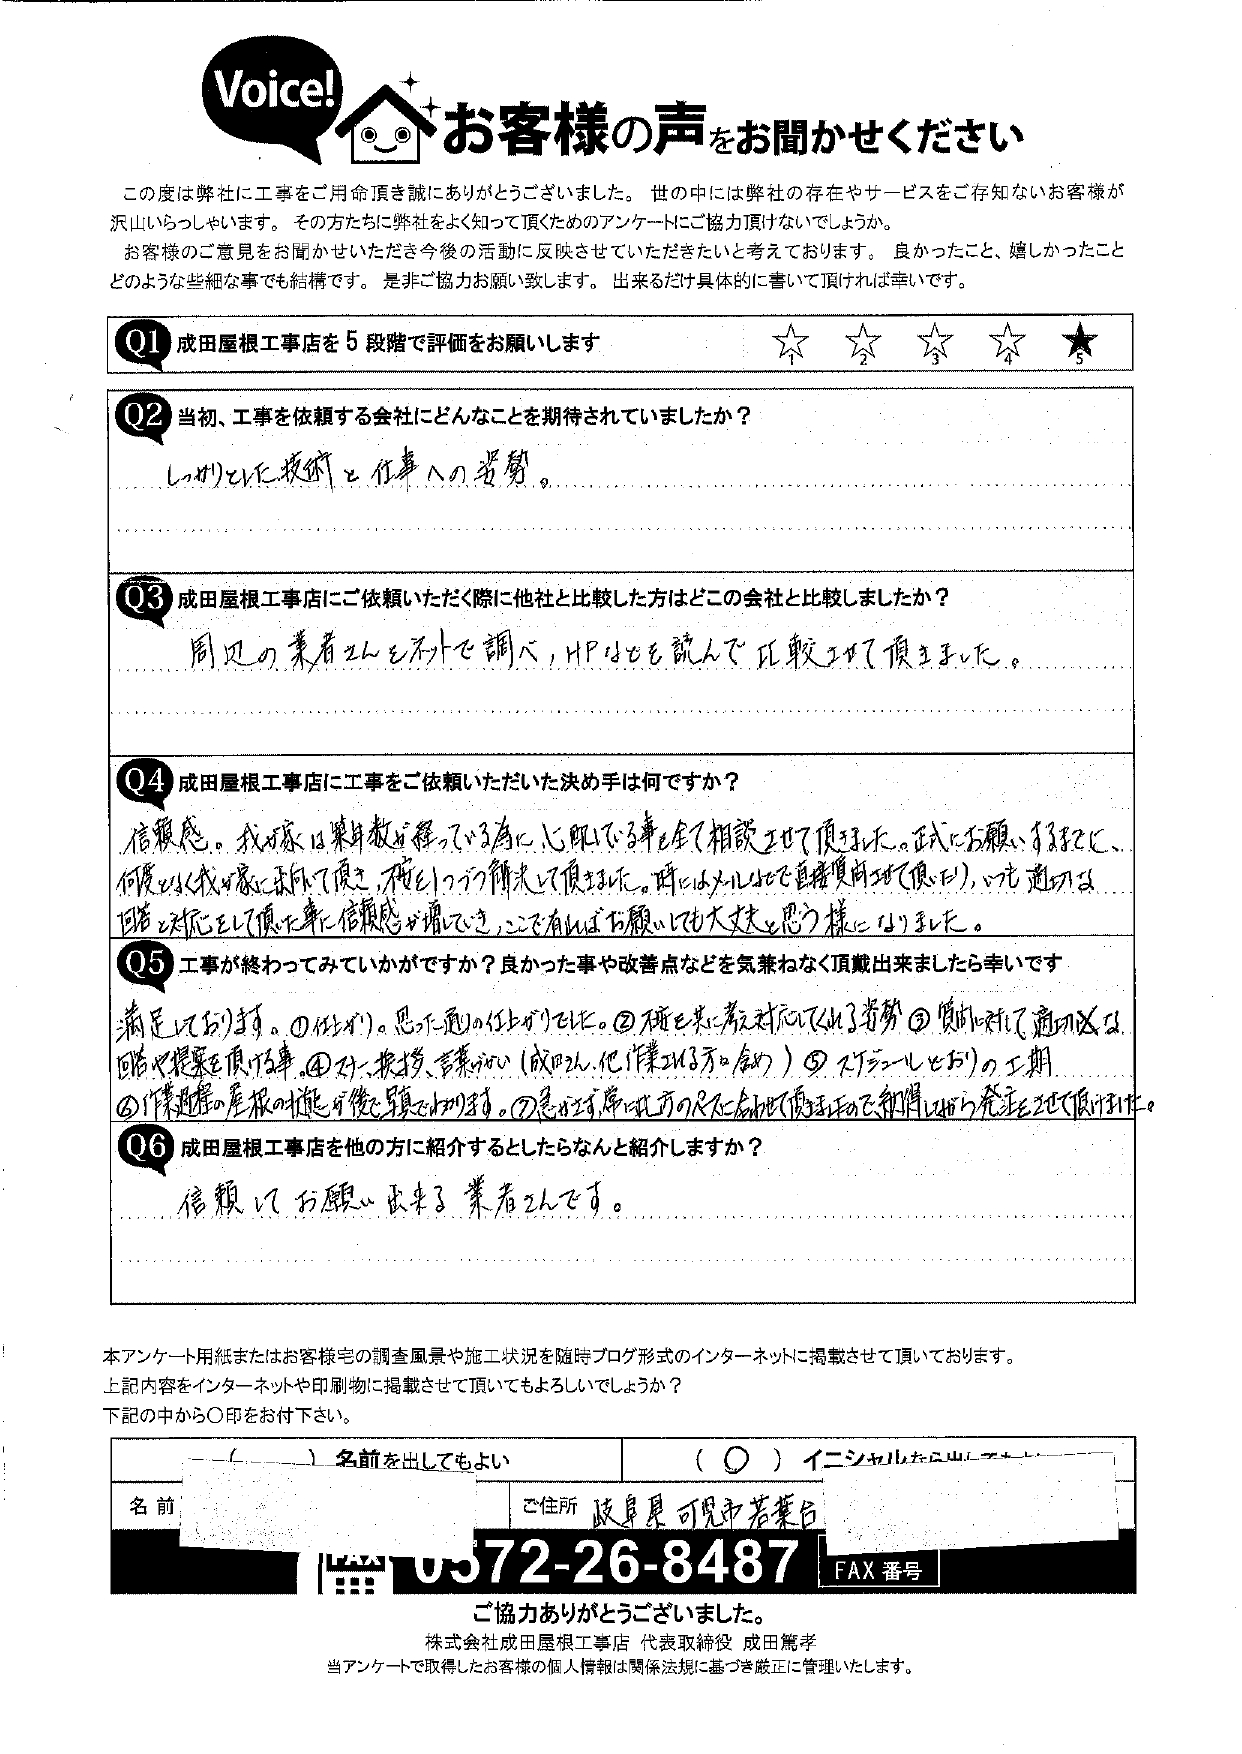 Voice!
お客様の声をお聞かせください
この度は弊社に工事をご用命頂き誠にありがとうございました。 世の中には弊社の存在やサービスをご存知ないお客様が
沢山いらっしゃいます。 その方たちに弊社をよく知って頂くためのアンケートにご協力頂けないでしょうか。
お客様のご意見をお聞かせいただき今後の活動に反映させていただきたいと考えております。 良かったこと、嬉しかったこと
どのような些細な事でも結構です。 是非ご協力お願い致します。 出来るだけ具体的に書いて頂ければ幸いです。
Q1 成田屋根工事店を5段階で評価をお願いします ☆1 ☆2 ☆3 ☆4 ★5
Q2 当初、工事を依頼する会社にどんなことを期待されていましたか？
しっかりとした技術と仕事への姿勢。
Q3 成田屋根工事店にご依頼いただく際に他社と比較した方はどこの会社と比較しましたか？
周辺の業者さんをネットで調べ,HPなどを読んで比較させて頂きました。
Q4 成田屋根工事店に工事をご依頼いただいた決め手は何ですか？
信頼感。我が家は築年数が経っている為に心配している事を全て相談させて頂きました。正式にお願いするまでに、
何度となく我が家に出向いて頂き,不安を1つづつ解決して頂きました。時にはメールなどで直接質問させて頂いたり,いつも適切な
回答と対応をして頂いた事に信頼感が増していき,ここで有ればお願いしても大丈夫と思う様になりました。
Q5 工事が終わってみていかがですか？良かった事や改善点などを気兼ねなく頂戴出来ましたら幸いです
満足しております。①仕上がり。思った通りの仕上がりでした。②不安を共に考え対応してくれる姿勢③質問に対して適切な
回答や提案を頂ける事。④マナー、挨拶、言葉づかい(成田さん、他作業される方も含め)⑤スケジュールどおりの工期
⑥作業過程の屋根の状態が後で写真でわかります。⑦急がさず,常に此方のペースに合わせて頂きましたので,納得しながら発注をさせて頂けました。
Q6 成田屋根工事店を他の方に紹介するとしたらなんと紹介しますか？
信頼してお願い出来る業者さんです。
本アンケート用紙またはお客様宅の調査風景や施工状況を随時ブログ形式のインターネットに掲載させて頂いております。
上記内容をインターネットや印刷物に掲載させて頂いてもよろしいでしょうか？
下記の中から〇印をお付下さい。
( ) 名前を出してもよい ( ○ ) イニシャルなら出しても
名前 ご住所 岐阜県可児市若葉台
FAX 0572-26-8487 FAX 番号
ご協力ありがとうございました。
株式会社成田屋根工事店 代表取締役 成田篤孝
当アンケートで取得したお客様の個人情報は関係法規に基づき厳正に管理いたします。